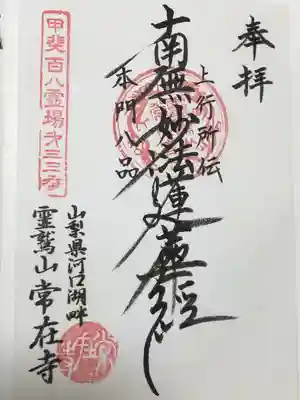 奉拝
上行所伝
南無妙法蓮華経
本門八品
山梨県河口湖畔
霊鷲山常在寺
甲斐百八霊場第三三番